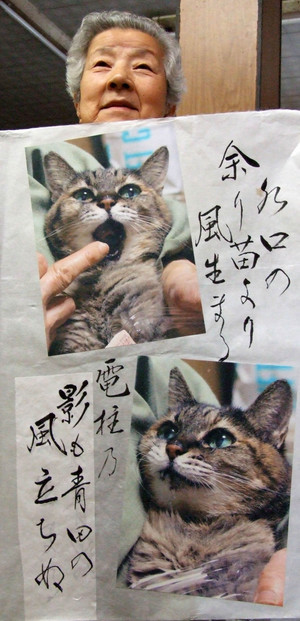 水口の
余り苗より
風生まる
電柱乃
影も青田の
風立ちぬ